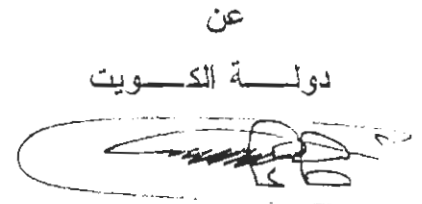 عن
دولـــة الكـــويت